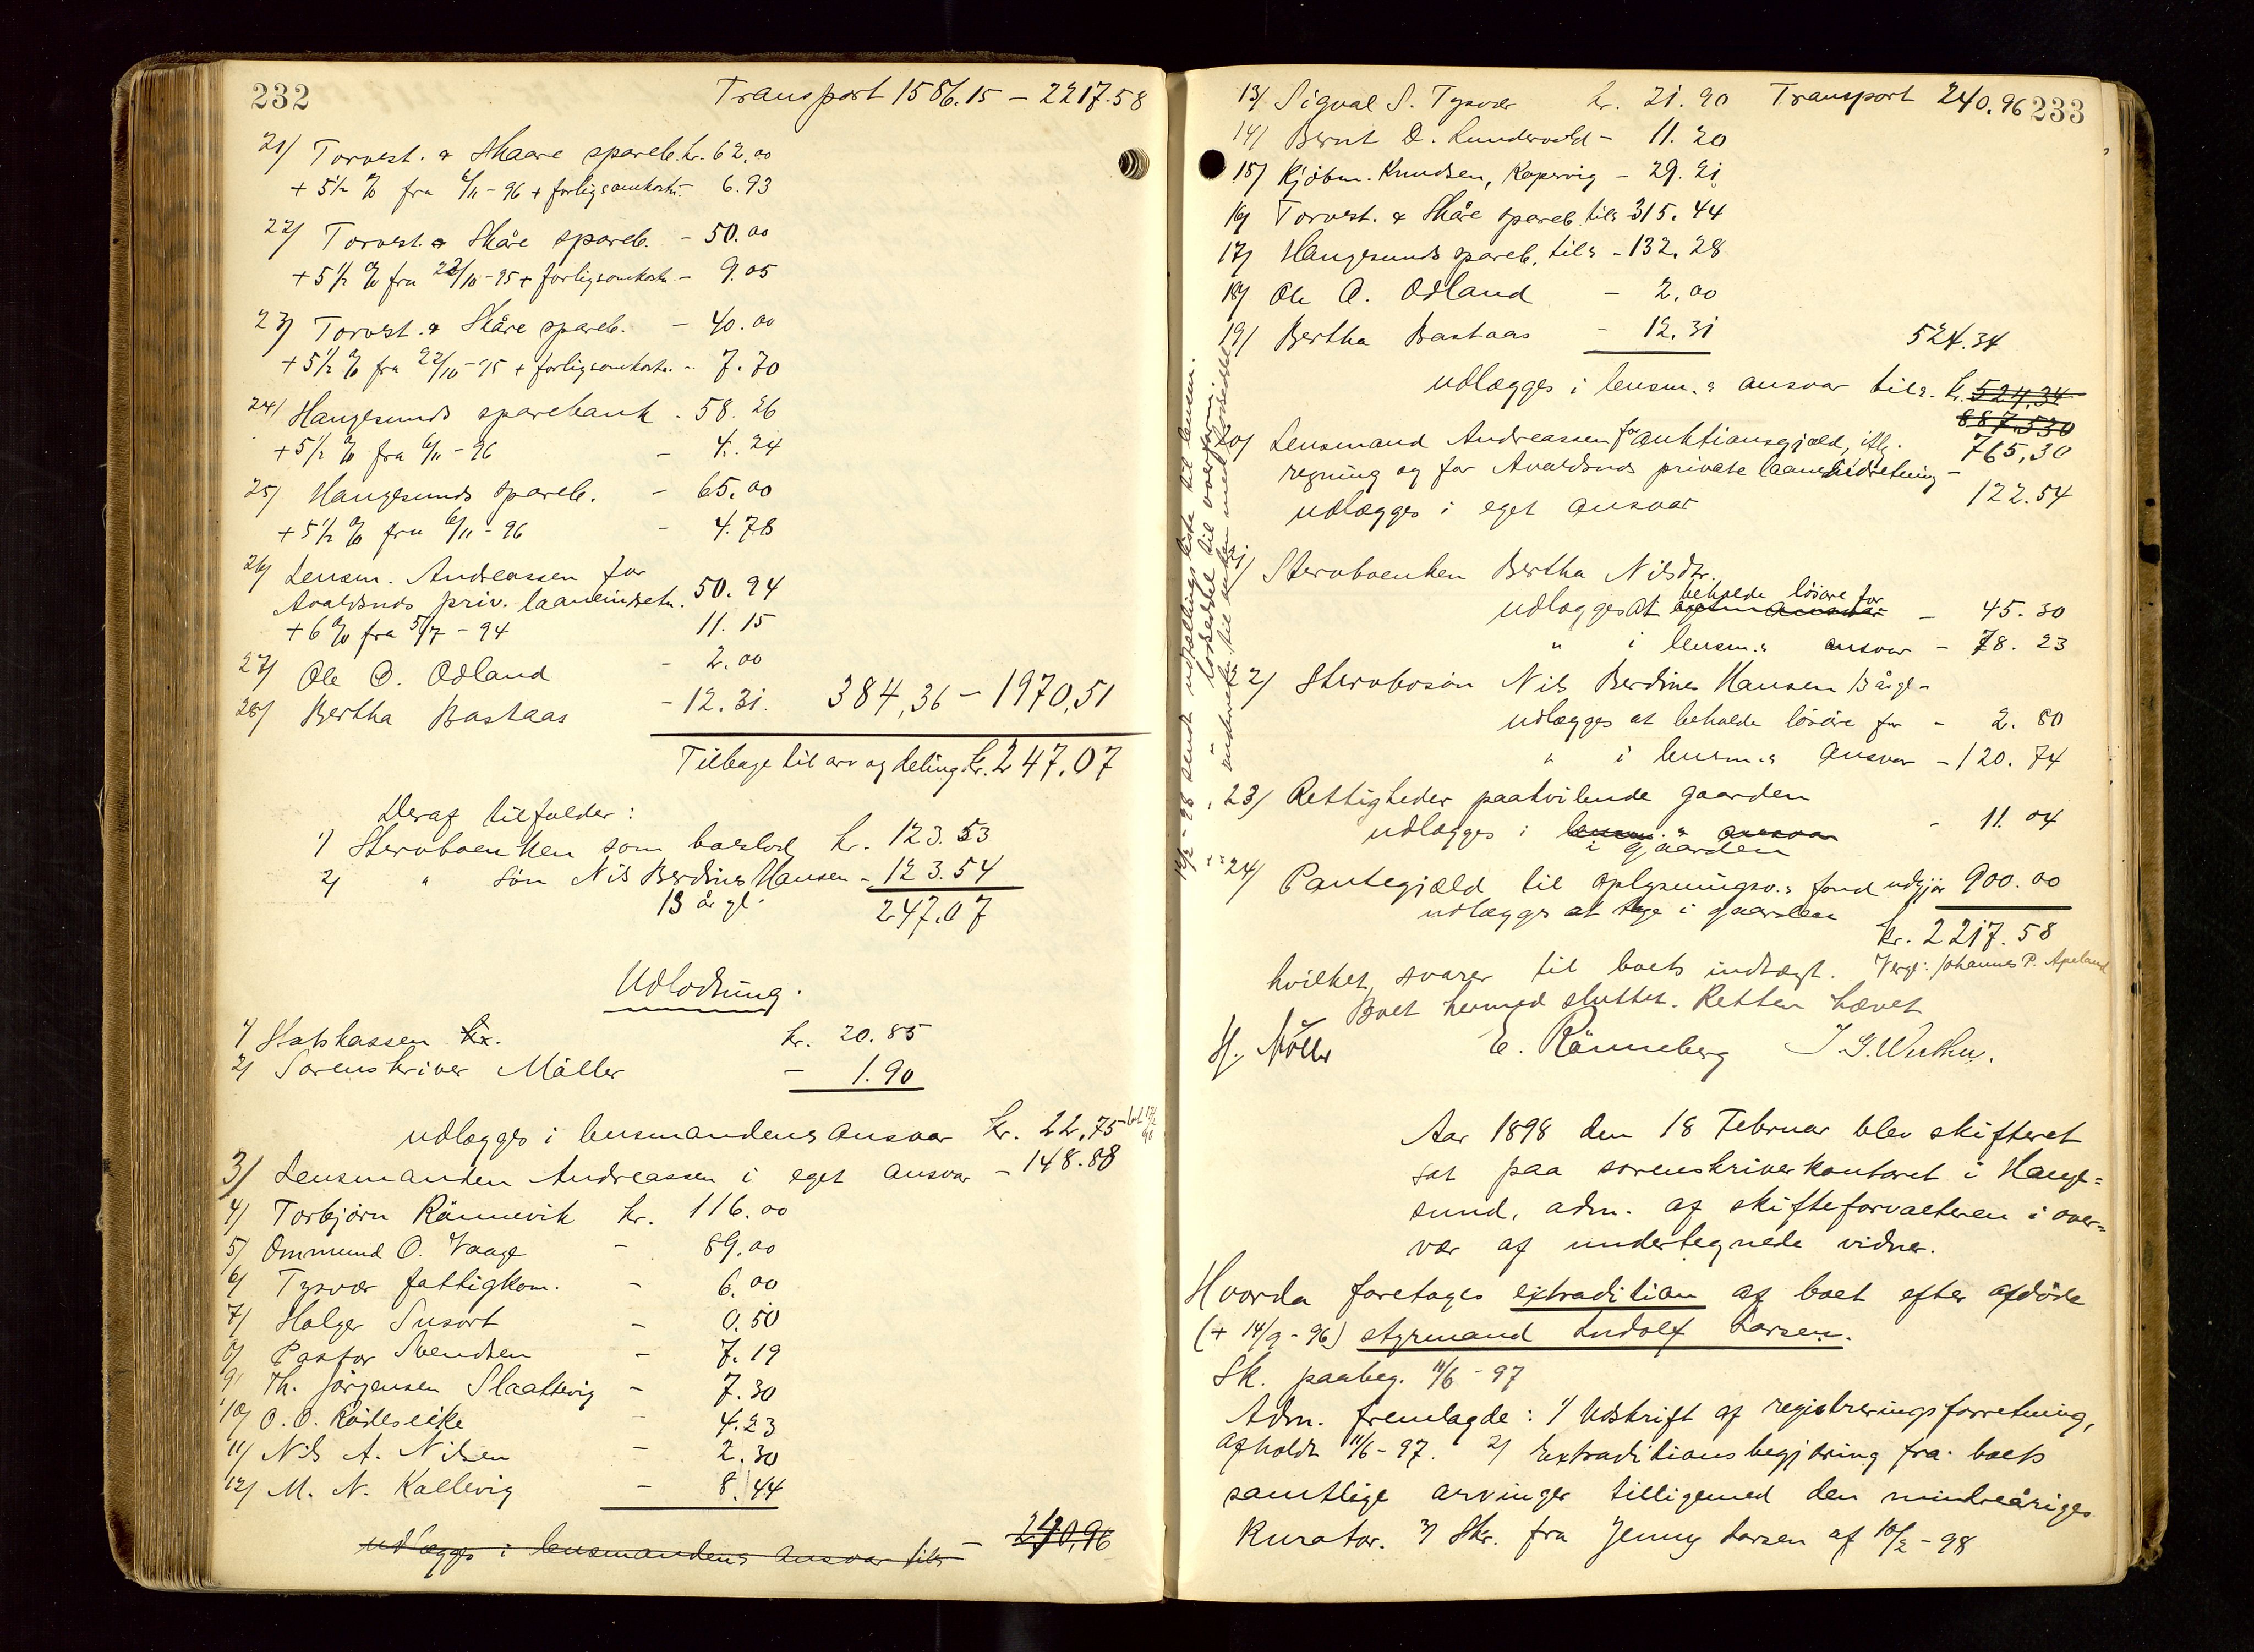 232
Transport 1586.15 - 2217.58
21/ Torvest. & Skaare spareb. kr. 62.00
+ 5 1/2 % fra 6/11 - 96 + forligsomkostn. - 6.93
22/ Torvest. & Skåre spareb. - 50.00
+ 5 1/2 % fra 22/10 - 95 + forligsomkostn. - 9.05
23/ Torvest. & Skåre spareb. - 40.00
+ 5 1/2 % fra 22/10 - 95 + forligsomkostn. - 7.70
24/ Haugesunds sparebank - 58.26
+ 5 1/2 % fra 6/11 - 96 - 4.24
25/ Haugesunds spareb. - 65.00
+ 5 1/2 % fra 6/11 - 96 - 4.78
26/ Lensm. Andreassen for
Avaldsnds priv. laaneindretn. 50.94
+ 6 % fra 5/7 - 94 11.15
27/ Ole O. Odland - 2.00
28/ Bertha Bastaas - 12.31. 384,36 - 1970,51
Tilbage til arv og deling kr. 247.07
Deraf tilfalder:
1/ Stervboenken som boeslod kr. 123.53
2/ " søn Nils Berdines Hansen - 123.54
13 år gl. 247.07
Udlodning.
1/ Statskassen kr. kr. 20.85
2/ Sorenskriver Møller - 1.90
udlægges i lensmandens ansvar kr. 22,75
3/ Lensmanden Andreassen i eget ansvar - 148.88
4/ Torbjørn Rønnevik kr. 116.00
5/ Ommund O. Vaage - 89.00
6/ Tysvær fattigkom. - 6.00
7/ Holger Susort - 0.50
8/ Pastor Svendsen - 7.19
9/ Th. Jørgensen Slaattevig - 7.30
10/ O. O. Rødeseike - 4.23
11/ Nils A. Nilsen - 2.30
12/ M. N. Kallevig - 8.44
udlægges i lensmandens ansvar tils - 240,96
13/ Sigval S. Tysvær kr. 21.90 Transport 240.96
233
14/ Bernt D. Lundervold - 11.20
15/ Kjøbm. Knudsen, Kopervig - 29.21
16/ Torvest. & Skåre spareb. tils 315.44
17/ Haugesunds spareb. tils - 132.28
18/ Ole O. Odland - 2.00
19/ Bertha Bastaas - 12.31 524.34
udlægges i lensm.s ansvar tils. kr. 524,34
887.530
765,30
20/ Lensmand Andreassen for auktionsgjæld, iflg.
regning og for Avaldsnds private laaneindretning -
udlægges i eget ansvar 122.54
21/ Stervboenken Bertha Nilsdtr.
udlægges at beholde løsøre for - 45.30
" i lensm.s ansvar - 78.23
22/ Stervbosøn Nils Berdines Hansen 13 år gl -
udlægges at beholde løsøre for - 2.80
" i lensm.s ansvar - 120.74
23/ Rettigheder paahvilende gaarden
udlægges i lensm.s ansvar - 11.04
i gaarden
24/ Pantegjæld til oplysningsv.s fond udgjør 900.00
udlægges at tage i gaarden
kr. 2217.58
hvilket svarer til boets indtægt. Verge: Johannes P. Apeland
Boet hermed sluttet. Retten hævet
H. Møller E. Rønneberg
Aar 1898 den 18 Februar blev skifteret
sat paa sorenskriverkontoret i Hauge=
sund, adm. af skifteforvalteren i over=
vær af undertegnede vidner.
Hvorda foretoges extradition af boet efter afdøde
(+ 14/9 - 96) styrmand Ludolf Larsen.
Sk. paabeg. 11/6 - 97
Adm. fremlagde: 1/ Udskrift af registreringsforretning,
afholdt 11/6 - 97. 2/ Extraditionsbegjæring fra boets
samtlige arvinger tilligemed den mindreåriges
Kurator. 3/ Skr. fra Jenny Larsen af 10/2 - 98